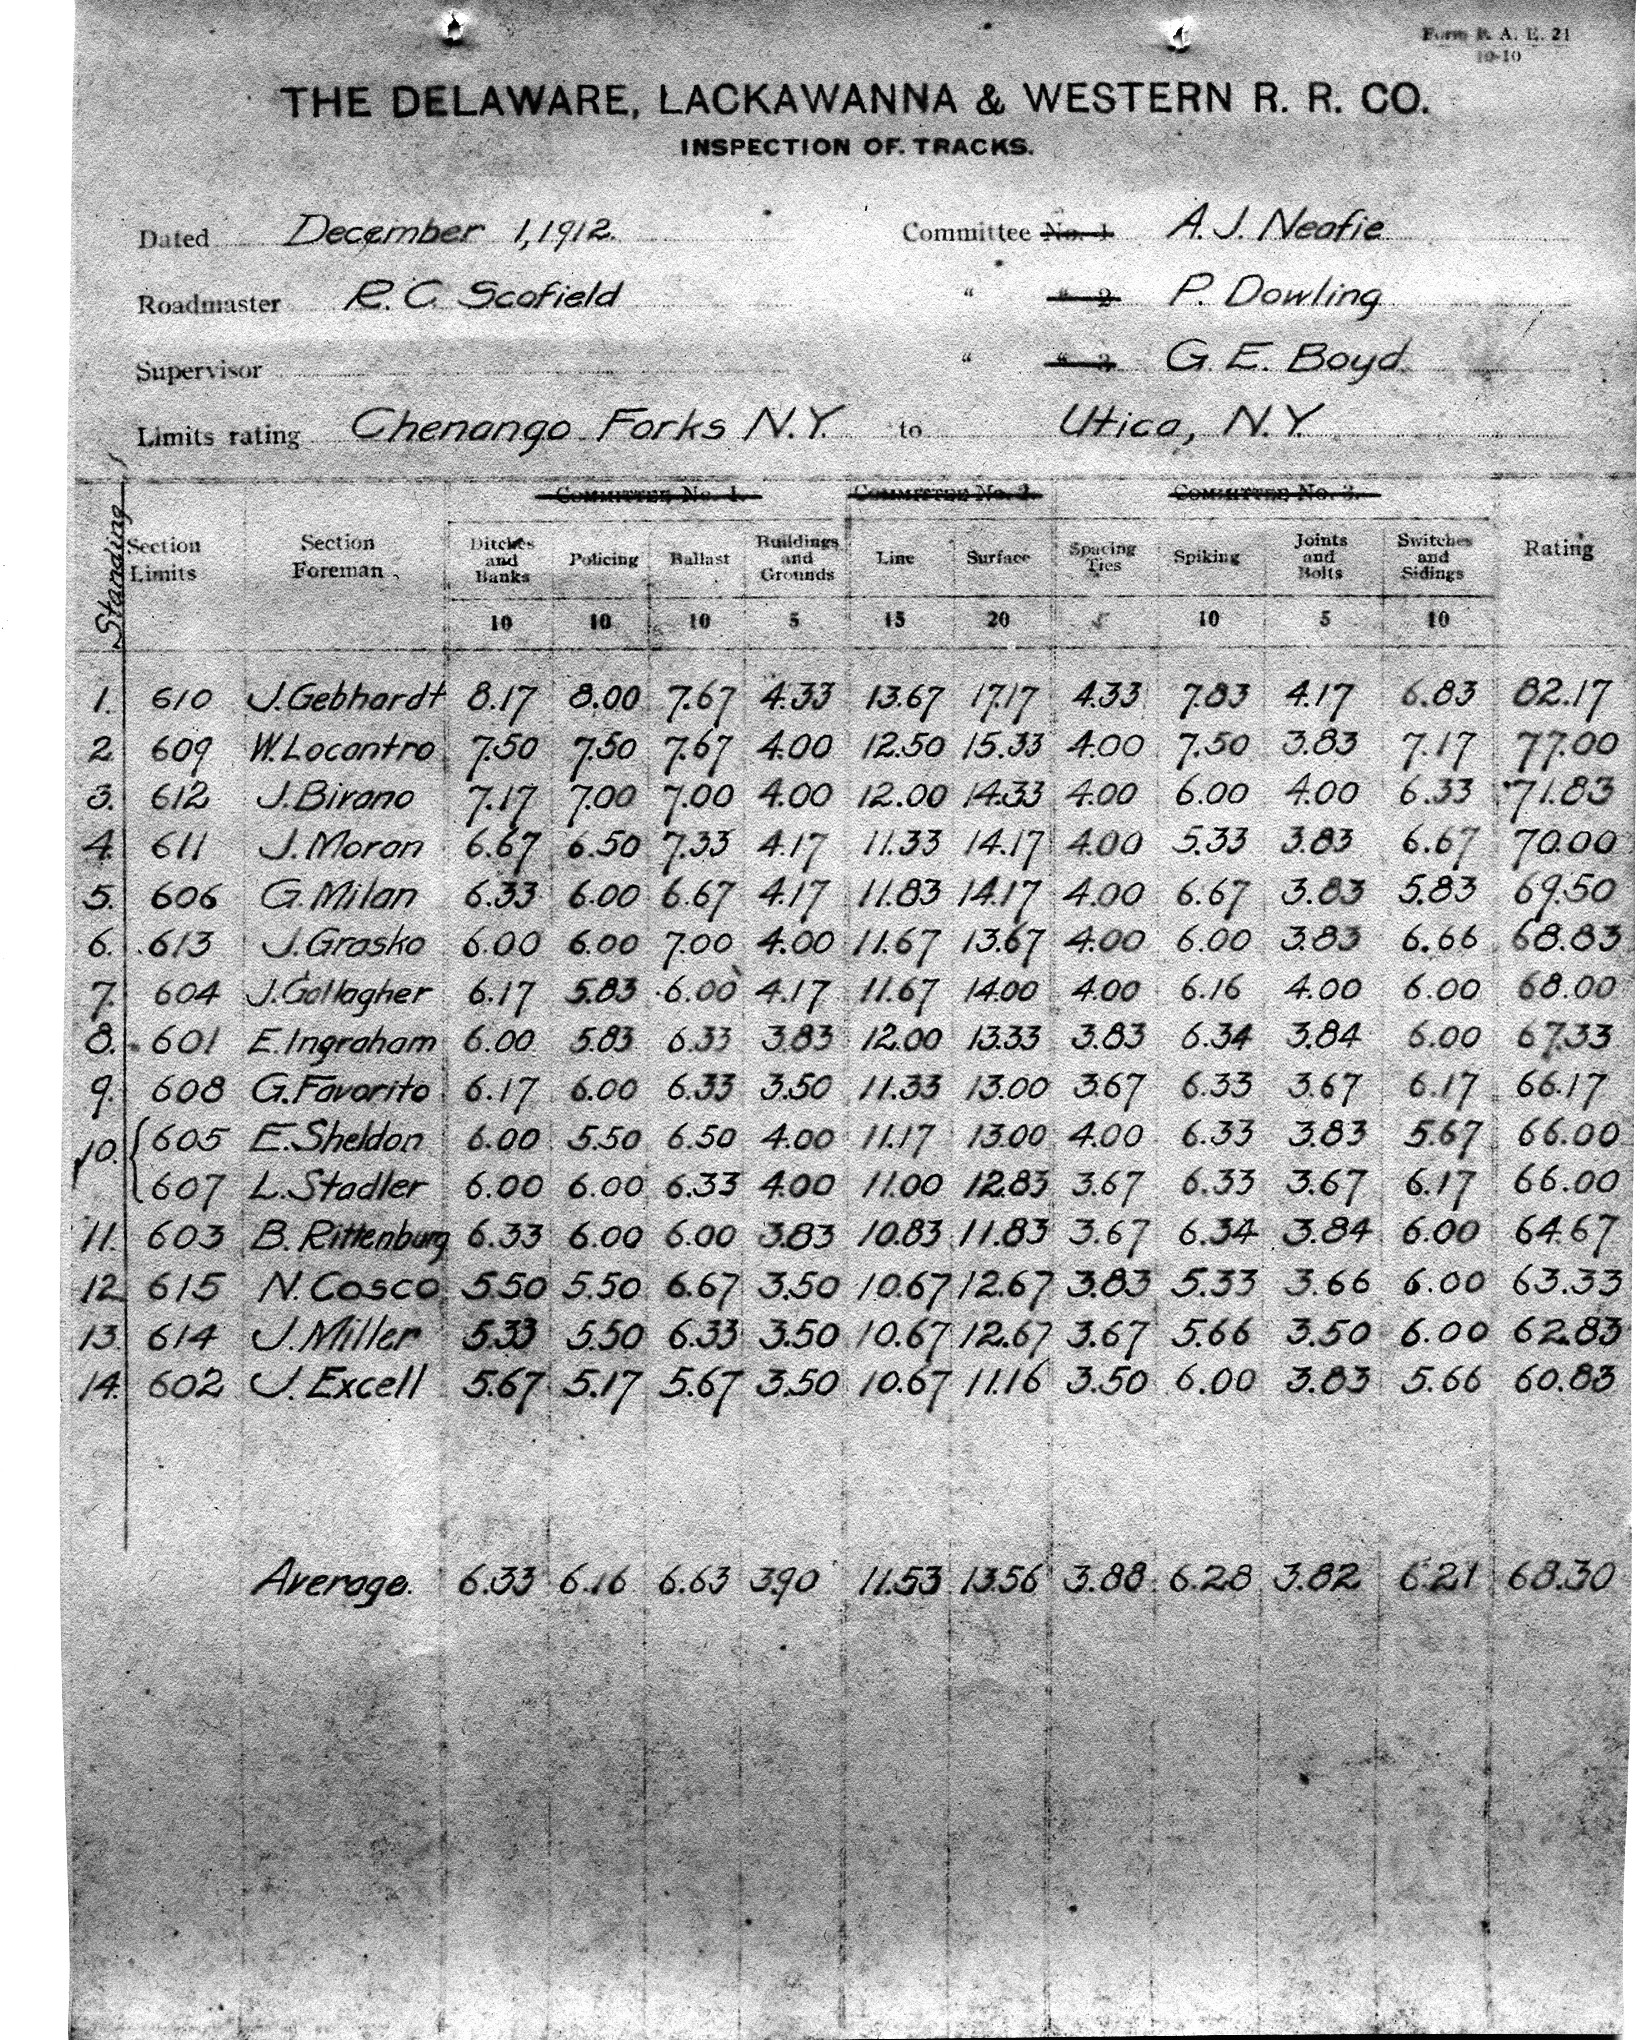 Form R. A. E. 21
10-10
THE DELAWARE, LACKAWANNA & WESTERN R. R. CO.
INSPECTION OF TRACKS.
Dated December 1, 1912. Committee No. 1 A. J. Neafie
Roadmaster R. C. Scofield " " 2 P. Dowling
Supervisor " " 3 G. E. Boyd
Limits rating Chenango Forks N.Y. to Utica, N.Y.
COMMITTEE No. 1. COMMITTEE No. 2. COMMITTEE No. 3.
Standing Section Limits Section Foreman Ditches and Banks Policing Ballast Buildings and Grounds Line Surface Spacing Ties Spiking Joints and Bolts Switches and Sidings Rating
10 10 10 5 15 20 5 10 5 10
1. 610 J. Gebhardt 8.17 8.00 7.67 4.33 13.67 17.17 4.33 7.83 4.17 6.83 82.17
2. 609 W. Locantro 7.50 7.50 7.67 4.00 12.50 15.33 4.00 7.50 3.83 7.17 77.00
3. 612 J. Birano 7.17 7.00 7.00 4.00 12.00 14.33 4.00 6.00 4.00 6.33 71.83
4. 611 J. Moran 6.67 6.50 7.33 4.17 11.33 14.17 4.00 5.33 3.83 6.67 70.00
5. 606 G. Milan 6.33 6.00 6.67 4.17 11.83 14.17 4.00 6.67 3.83 5.83 69.50
6. 613 J. Grasko 6.00 6.00 7.00 4.00 11.67 13.67 4.00 6.00 3.83 6.66 68.83
7. 604 J. Gallagher 6.17 5.83 6.00 4.17 11.67 14.00 4.00 6.16 4.00 6.00 68.00
8. 601 E. Ingraham 6.00 5.83 6.33 3.83 12.00 13.33 3.83 6.34 3.84 6.00 67.33
9. 608 G. Favorito 6.17 6.00 6.33 3.50 11.33 13.00 3.67 6.33 3.67 6.17 66.17
10. 605 E. Sheldon 6.00 5.50 6.50 4.00 11.17 13.00 4.00 6.33 3.83 5.67 66.00
607 L. Stadler 6.00 6.00 6.33 4.00 11.00 12.83 3.67 6.33 3.67 6.17 66.00
11. 603 B. Rittenburg 6.33 6.00 6.00 3.83 10.83 11.83 3.67 6.34 3.84 6.00 64.67
12. 615 N. Cosco 5.50 5.50 6.67 3.50 10.67 12.67 3.83 5.33 3.66 6.00 63.33
13. 614 J. Miller 5.33 5.50 6.33 3.50 10.67 12.67 3.67 5.66 3.50 6.00 62.83
14. 602 J. Excell 5.67 5.17 5.67 3.50 10.67 11.16 3.50 6.00 3.83 5.66 60.83
Average. 6.33 6.16 6.63 3.90 11.53 13.56 3.88 6.28 3.82 6.21 68.30